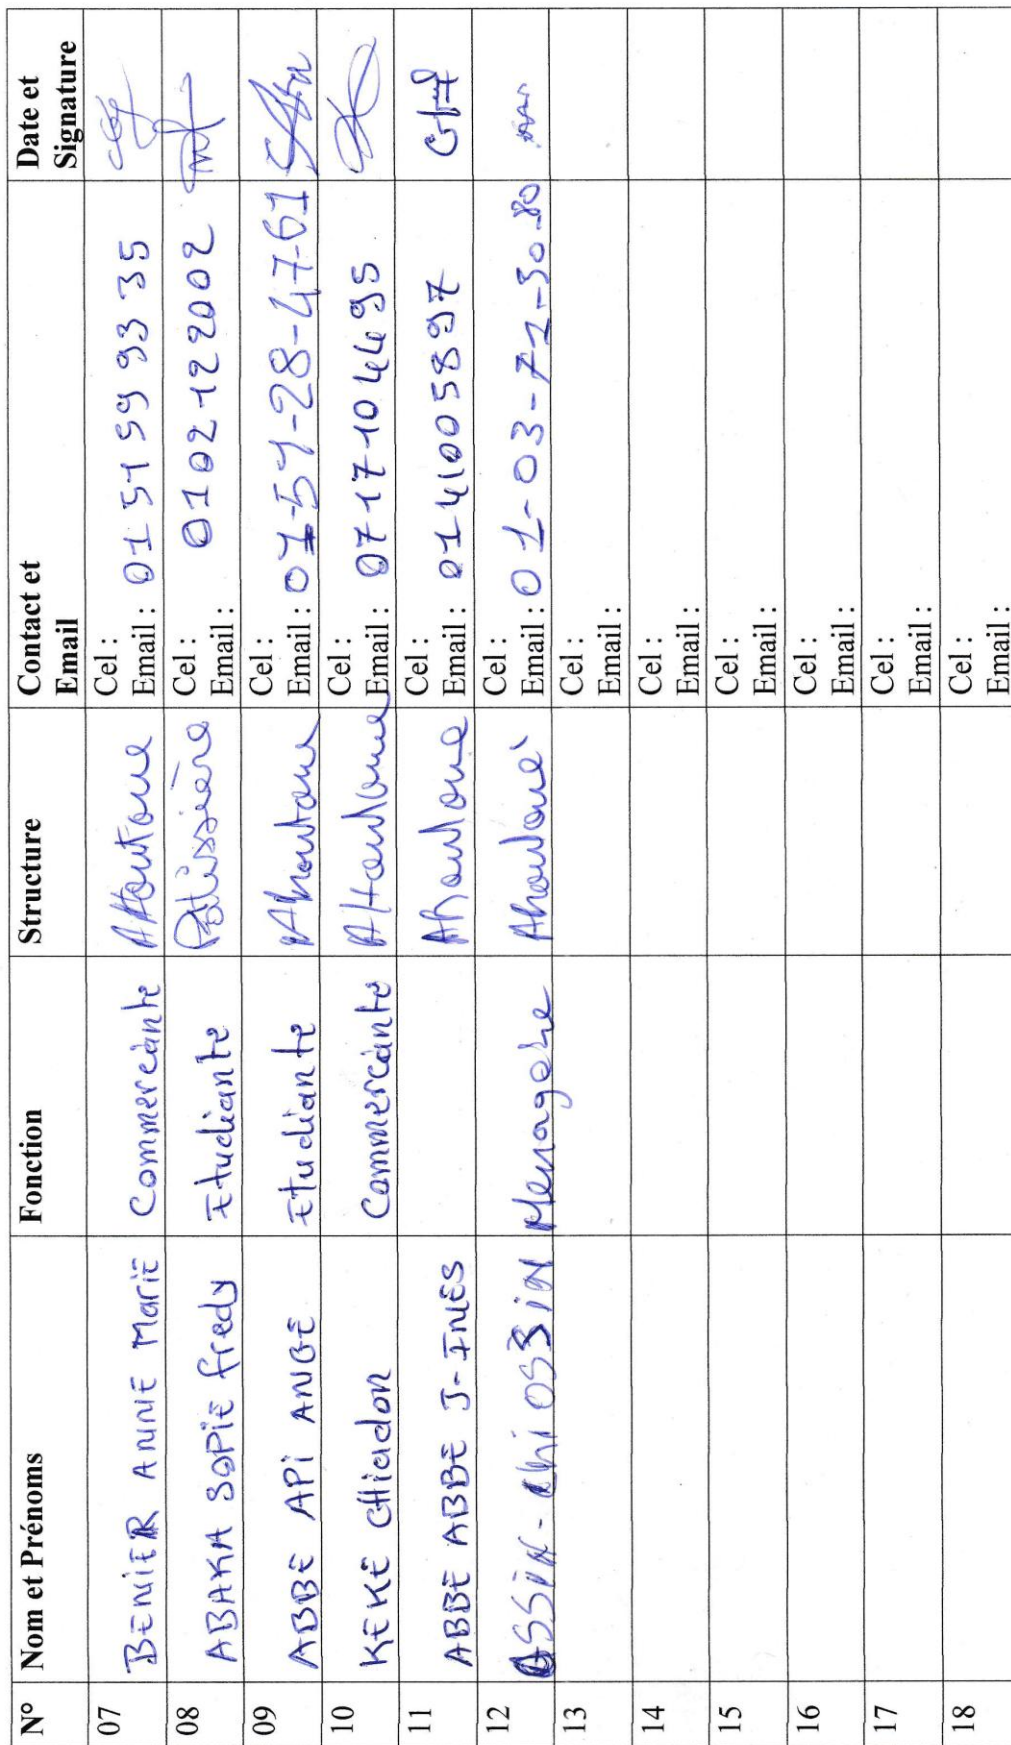 N° Nom et Prénoms Fonction Structure Contact et Email Date et Signature
07 BENIER ANNIE MariE Commerçante AHoutoue Cel :
Email : 01 51 59 93 35
08 ABAKA SOPIE fredy Etudiante Patissière Cel : 0102122002
Email :
09 ABBE APi ANGE Etudiante Ahoutoue Cel :
Email : 01-57-28-47-61
10 KEKE CHiadon Commerçante AHoutoue Cel :
Email : 07 17 10 44 95
11 ABBE ABBE J-INES Ahoutoue Cel :
Email : 01 41005897
12 ASSIN- Menagère Ahoutoué Cel :
Email : 01-03-72-30-80
13 Cel :
Email :
14 Cel :
Email :
15 Cel :
Email :
16 Cel :
Email :
17 Cel :
Email :
18 Cel :
Email :